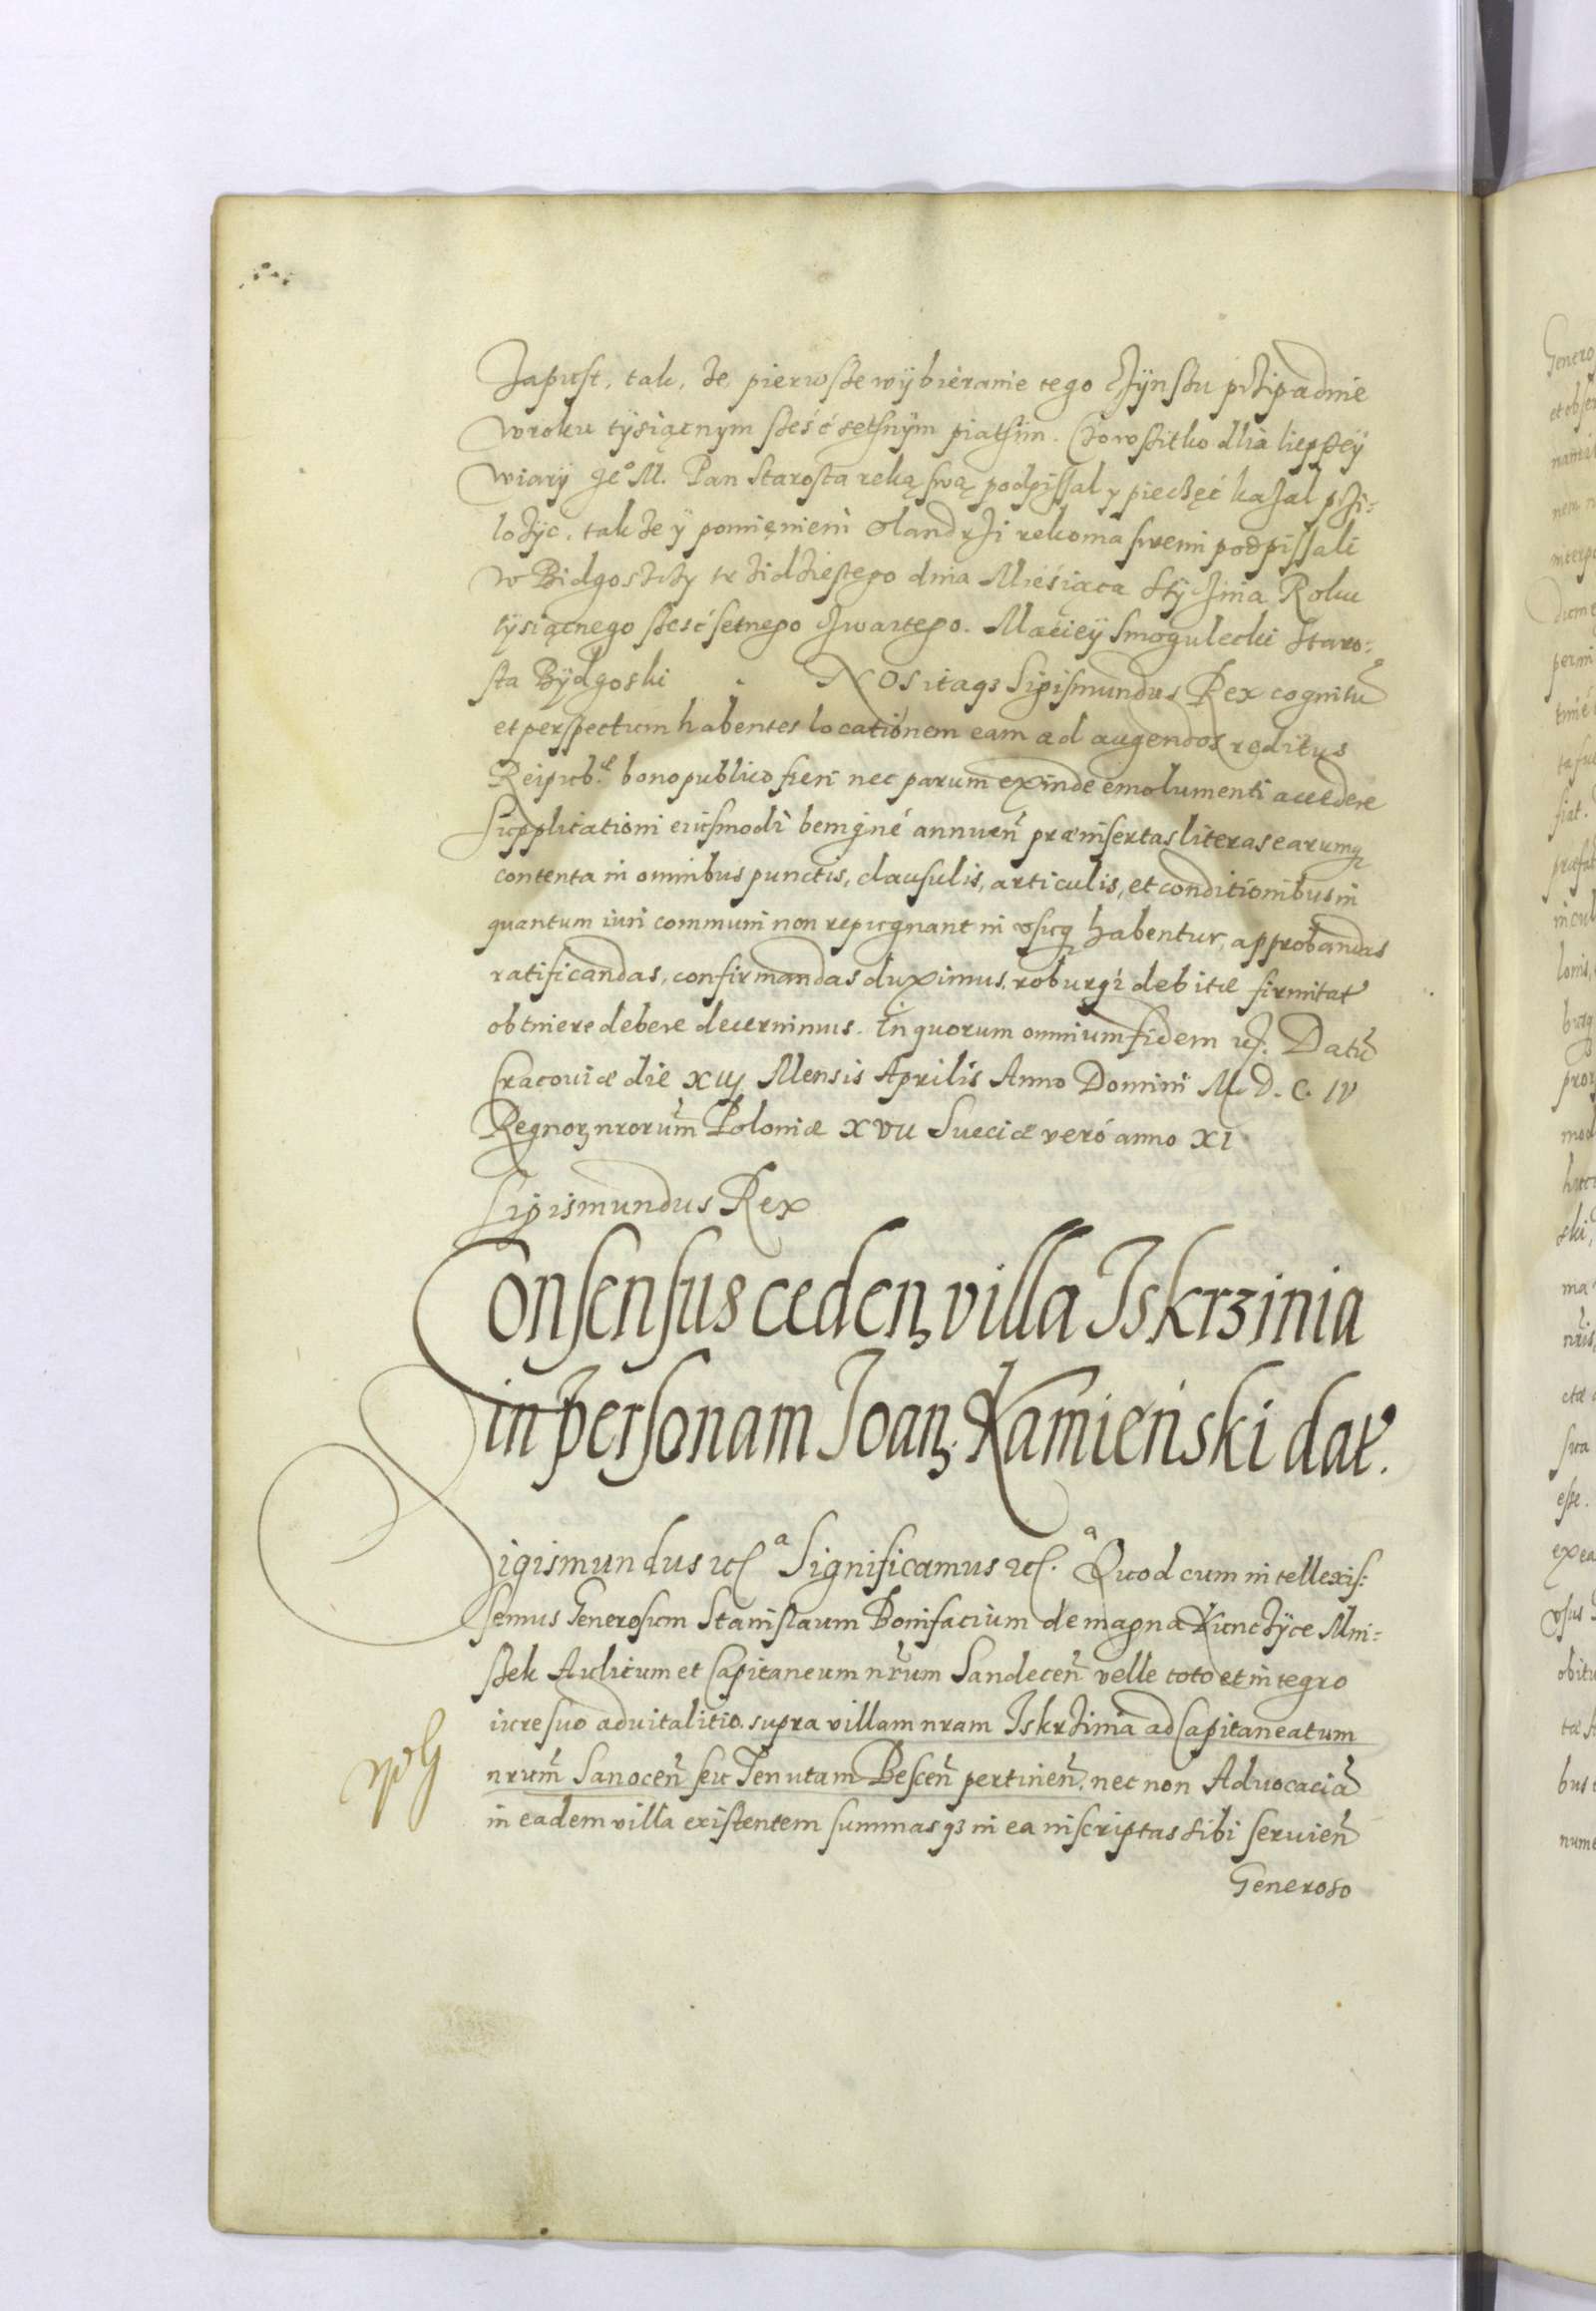 Zapust, tak, że pierwsze wÿbieranie tego czÿnszu przipadnie
w roku tÿsiącnym sześćsetsnÿm piatsim. Co wszitko dlia liepszeÿ
wiarÿ Jeº M. Pan Starosta ręką swą podpissal y pieczęć kazal przi=
lożÿc, także ÿ pomięnieni Olandrzi rekoma swemi podpissali
w Bidgosztzy trzidziestego dnia Miésiąca Stÿcznia Roku
tÿsiącnego szesćsetnego czwartego. Macieÿ Smogulecki Staro=
sta Bÿdgoski. Nos itaqꝫ Sigismundus Rex cognitū
et perspectum habentes locationem eam ad augendos reditus
Reipub.ᵉ bono publico fieri nec parum exinde emolumenti accedere
supplicationi eiusmodi benigné annueñ præinsertas literas earumq̨
contenta in omnibus punctis, clausulis, articulis, et conditionibus in
quantum iuri communi non repugnant in usuq̨ habentur, approbandas
ratificandas, confirmandas duximus, roburqꝫ debitæ firmitat̕
obtinere debere decernimus. In quorum omnium fidem ꝛc. Datū
Cracoviæ die XIIJ Mensis Aprilis Anno Domini M. D. C. IV
Regnorꝫ nrorum̃ Poloniæ XVII Sueciæ veró anno XI
Sigismundus Rex
Consensus cedenꝫ villa Iskrzinia
in personam Ioanꝫ Kamieński dat̕.
Sigismundus ꝛcᵃ Significamus ꝛc.ᵃ Quod cum intellexis=
semus Generosum Stanislaum Bonifacium de magna Kunczÿce Mni=
szek Aulicum et Capitaneum nr̃um Sandeceñ velle toto et integro
iure suo advitalitio supra villam nram Iskrzinia ad Capitaneatum
nrum̃ Sanoceñ seu Tenutam Besceñ pertineñ, nec non Advocaciã
in eadem villa existentem summasqꝫ in ea inscriptas sibi servieñ
Generoso